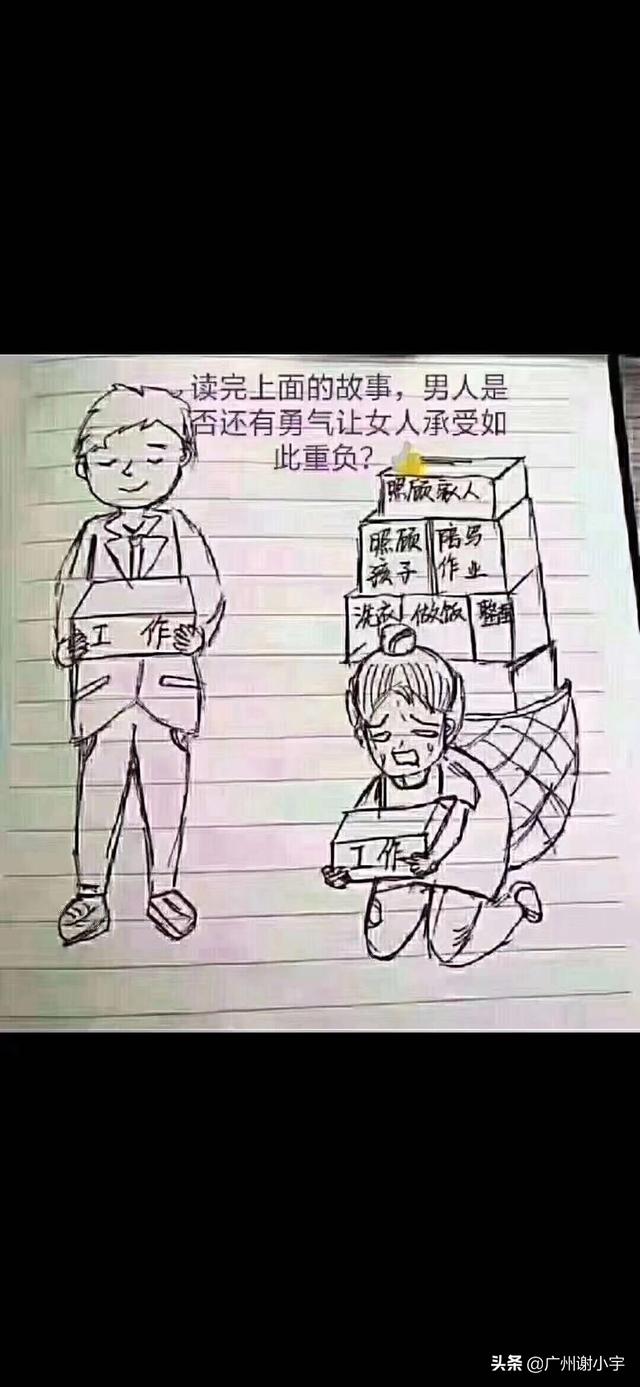 读完上面的故事，男人是
否还有勇气让女人承受如
此重负？
照顾家人
照顾
孩子
陪写
作业
洗衣
做饭
整理
工作
工作
头条 @广州谢小宇